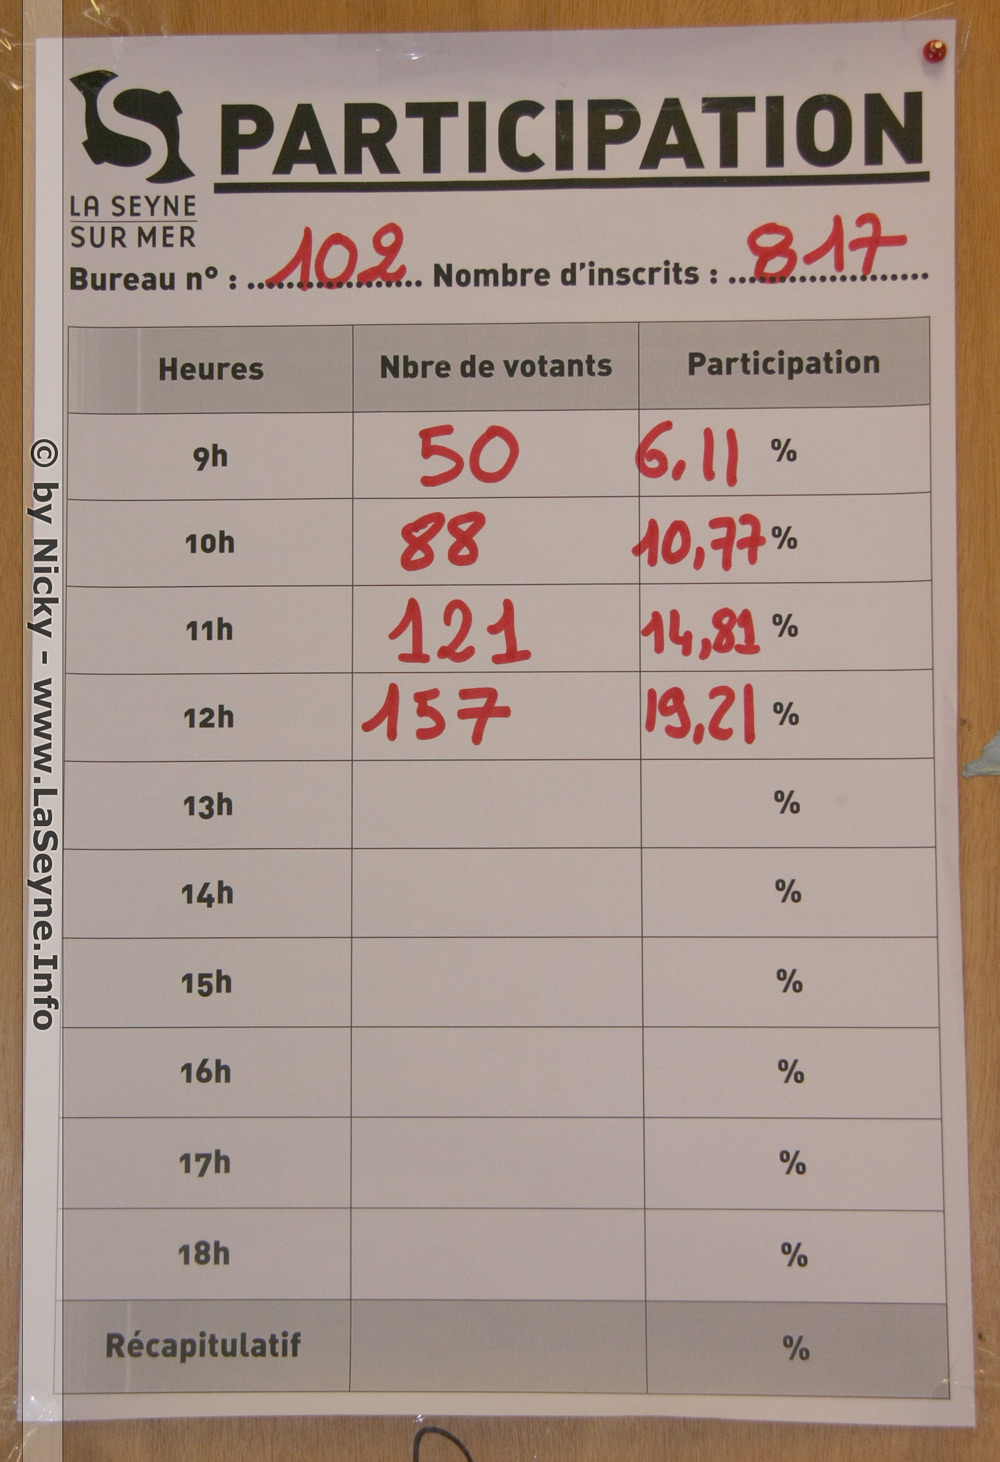 PARTICIPATION
LA SEYNE
SUR MER
Bureau n° : 102 Nombre d'inscrits : 817
Heures Nbre de votants Participation
9h 50 6,11 %
10h 88 10,77 %
11h 121 14,81 %
12h 157 19,21 %
13h %
14h %
15h %
16h %
17h %
18h %
Récapitulatif %
© by Nicky - www.LaSeyne.Info